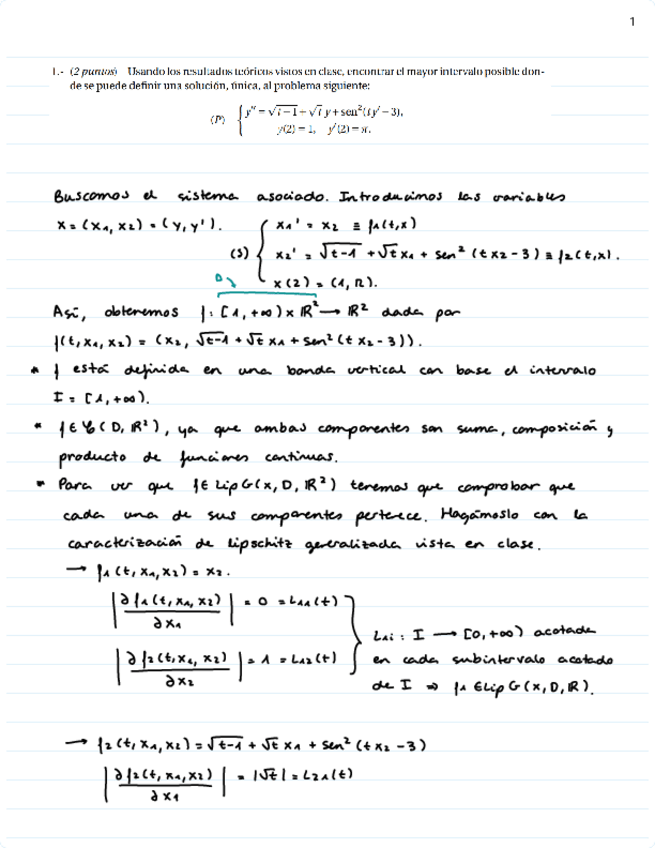 1
1.- (2 puntos) Usando los resultados teóricos vistos en clase, encontrar el mayor intervalo posible don-
de se puede definir una solución, única, al problema siguiente:
(P) { y'' = √t−1 + √t y + sen²(t y' − 3),
y(2) = 1, y'(2) = π.
Buscamos el sistema asociado. Introducimos las variables
x = (x₁, x₂) = (y, y'). { x₁' = x₂ ≡ f₁(t,x)
(S) x₂' = √t−1 + √t x₁ + sen²(t x₂ − 3) ≡ f₂(t,x).
x(2) = (1, π).
D
Así, obtenemos f: [1, +∞) × ℝ² → ℝ² dada por
f(t, x₁, x₂) = (x₂, √t−1 + √t x₁ + sen²(t x₂ − 3)).
* f está definida en una banda vertical con base el intervalo
I = [1, +∞).
* f ∈ C(D, ℝ²), ya que ambas componentes son suma, composición y
producto de funciones continuas.
* Para ver que f ∈ LipG(x, D, ℝ²) tenemos que comprobar que
cada una de sus componentes pertenece. Hagámoslo con la
caracterización de Lipschitz generalizada vista en clase.
→ f₁(t, x₁, x₂) = x₂.
|∂f₁(t, x₁, x₂) / ∂x₁| = 0 = L₁₁(t)
|∂f₂(t, x₁, x₂) / ∂x₂| = 1 = L₁₂(t)
} L₁ᵢ : I → [0, +∞) acotada
en cada subintervalo acotado
de I ⇒ f₁ ∈ LipG(x, D, ℝ).
→ f₂(t, x₁, x₂) = √t−1 + √t x₁ + sen²(t x₂ − 3)
|∂f₂(t, x₁, x₂) / ∂x₁| = |√t| = L₂₁(t)